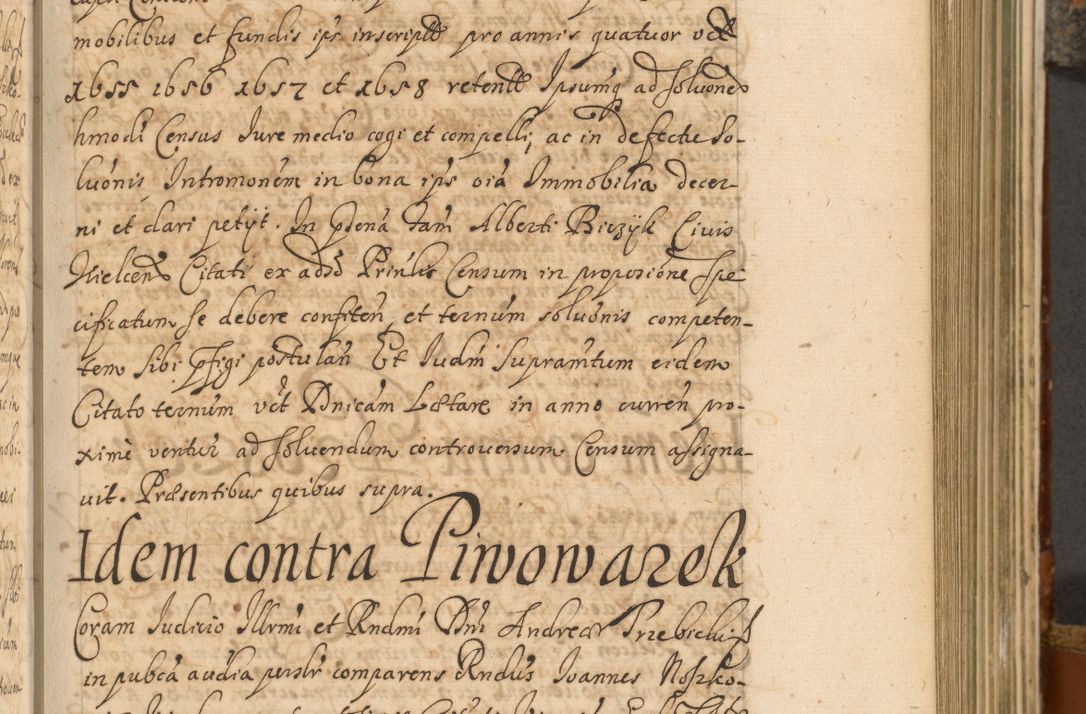 mobilibus et fundis ips inscriptt pro annis quatuor vct
1655 1656 1657 et 1658 retentt Ipsumq ad soluone
hmodi Census Iure medio cogi et compelli, ac in defectu so-
luonis Intromonem in bona ips oia Immobilia decer-
ni et dari petijt. In pdena tam Alberti Biczyk Ciuis
Kielcen Citati ex adso Prinlis Censum in proposione spe
cificatum se debere confiten, et ternum soluonis competen-
tem sibi pfigi postulan Et Iudm supramtum eidem
Citato ternum vct Dnicam Lætare in anno curren pro-
ximè ventur ad soluendum controuersum Censum assigna-
uit. Præsentibus quibus supra.
Idem contra Piwowarek
Coram Iudicio Illrmi et Rndmi Dni Andreæ Trzebicki
in pubca audia perslr comparens Rndus Ioannes Noszko-